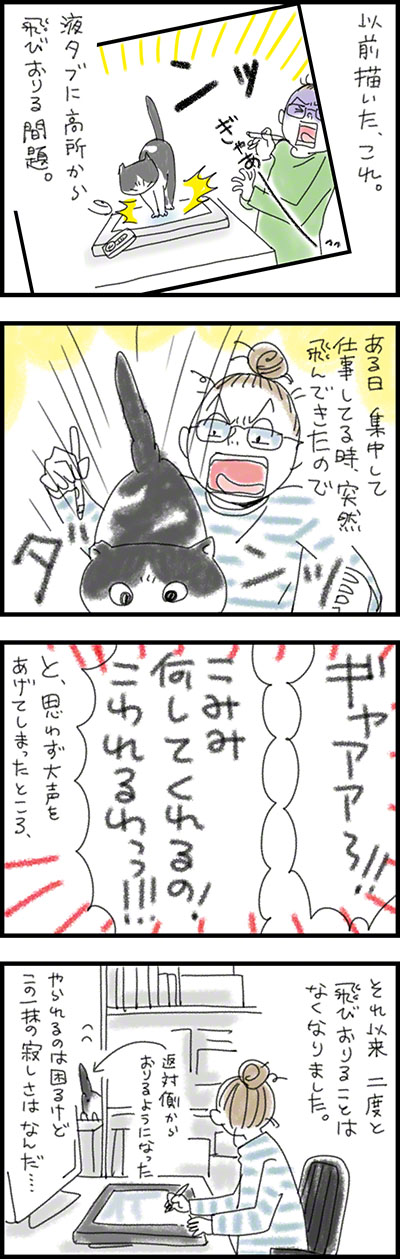 以前描いた、これ。
ニッ
ぎゃあ
液タブに高所から
飛びおりる問題。
ある日 集中して
仕事してる時、突然
飛んできたので
ダニッ
ギャアアろ!!
こみみ
何してくれるの!
こわれるわっっ!!!
と、思わず大声を
あげてしまったところ、
それ以来 二度と
飛びおりることは
なくなりました。
返対側から
おりるようになった
やられるのは困るけど
この一抹の寂しさはなんだ…